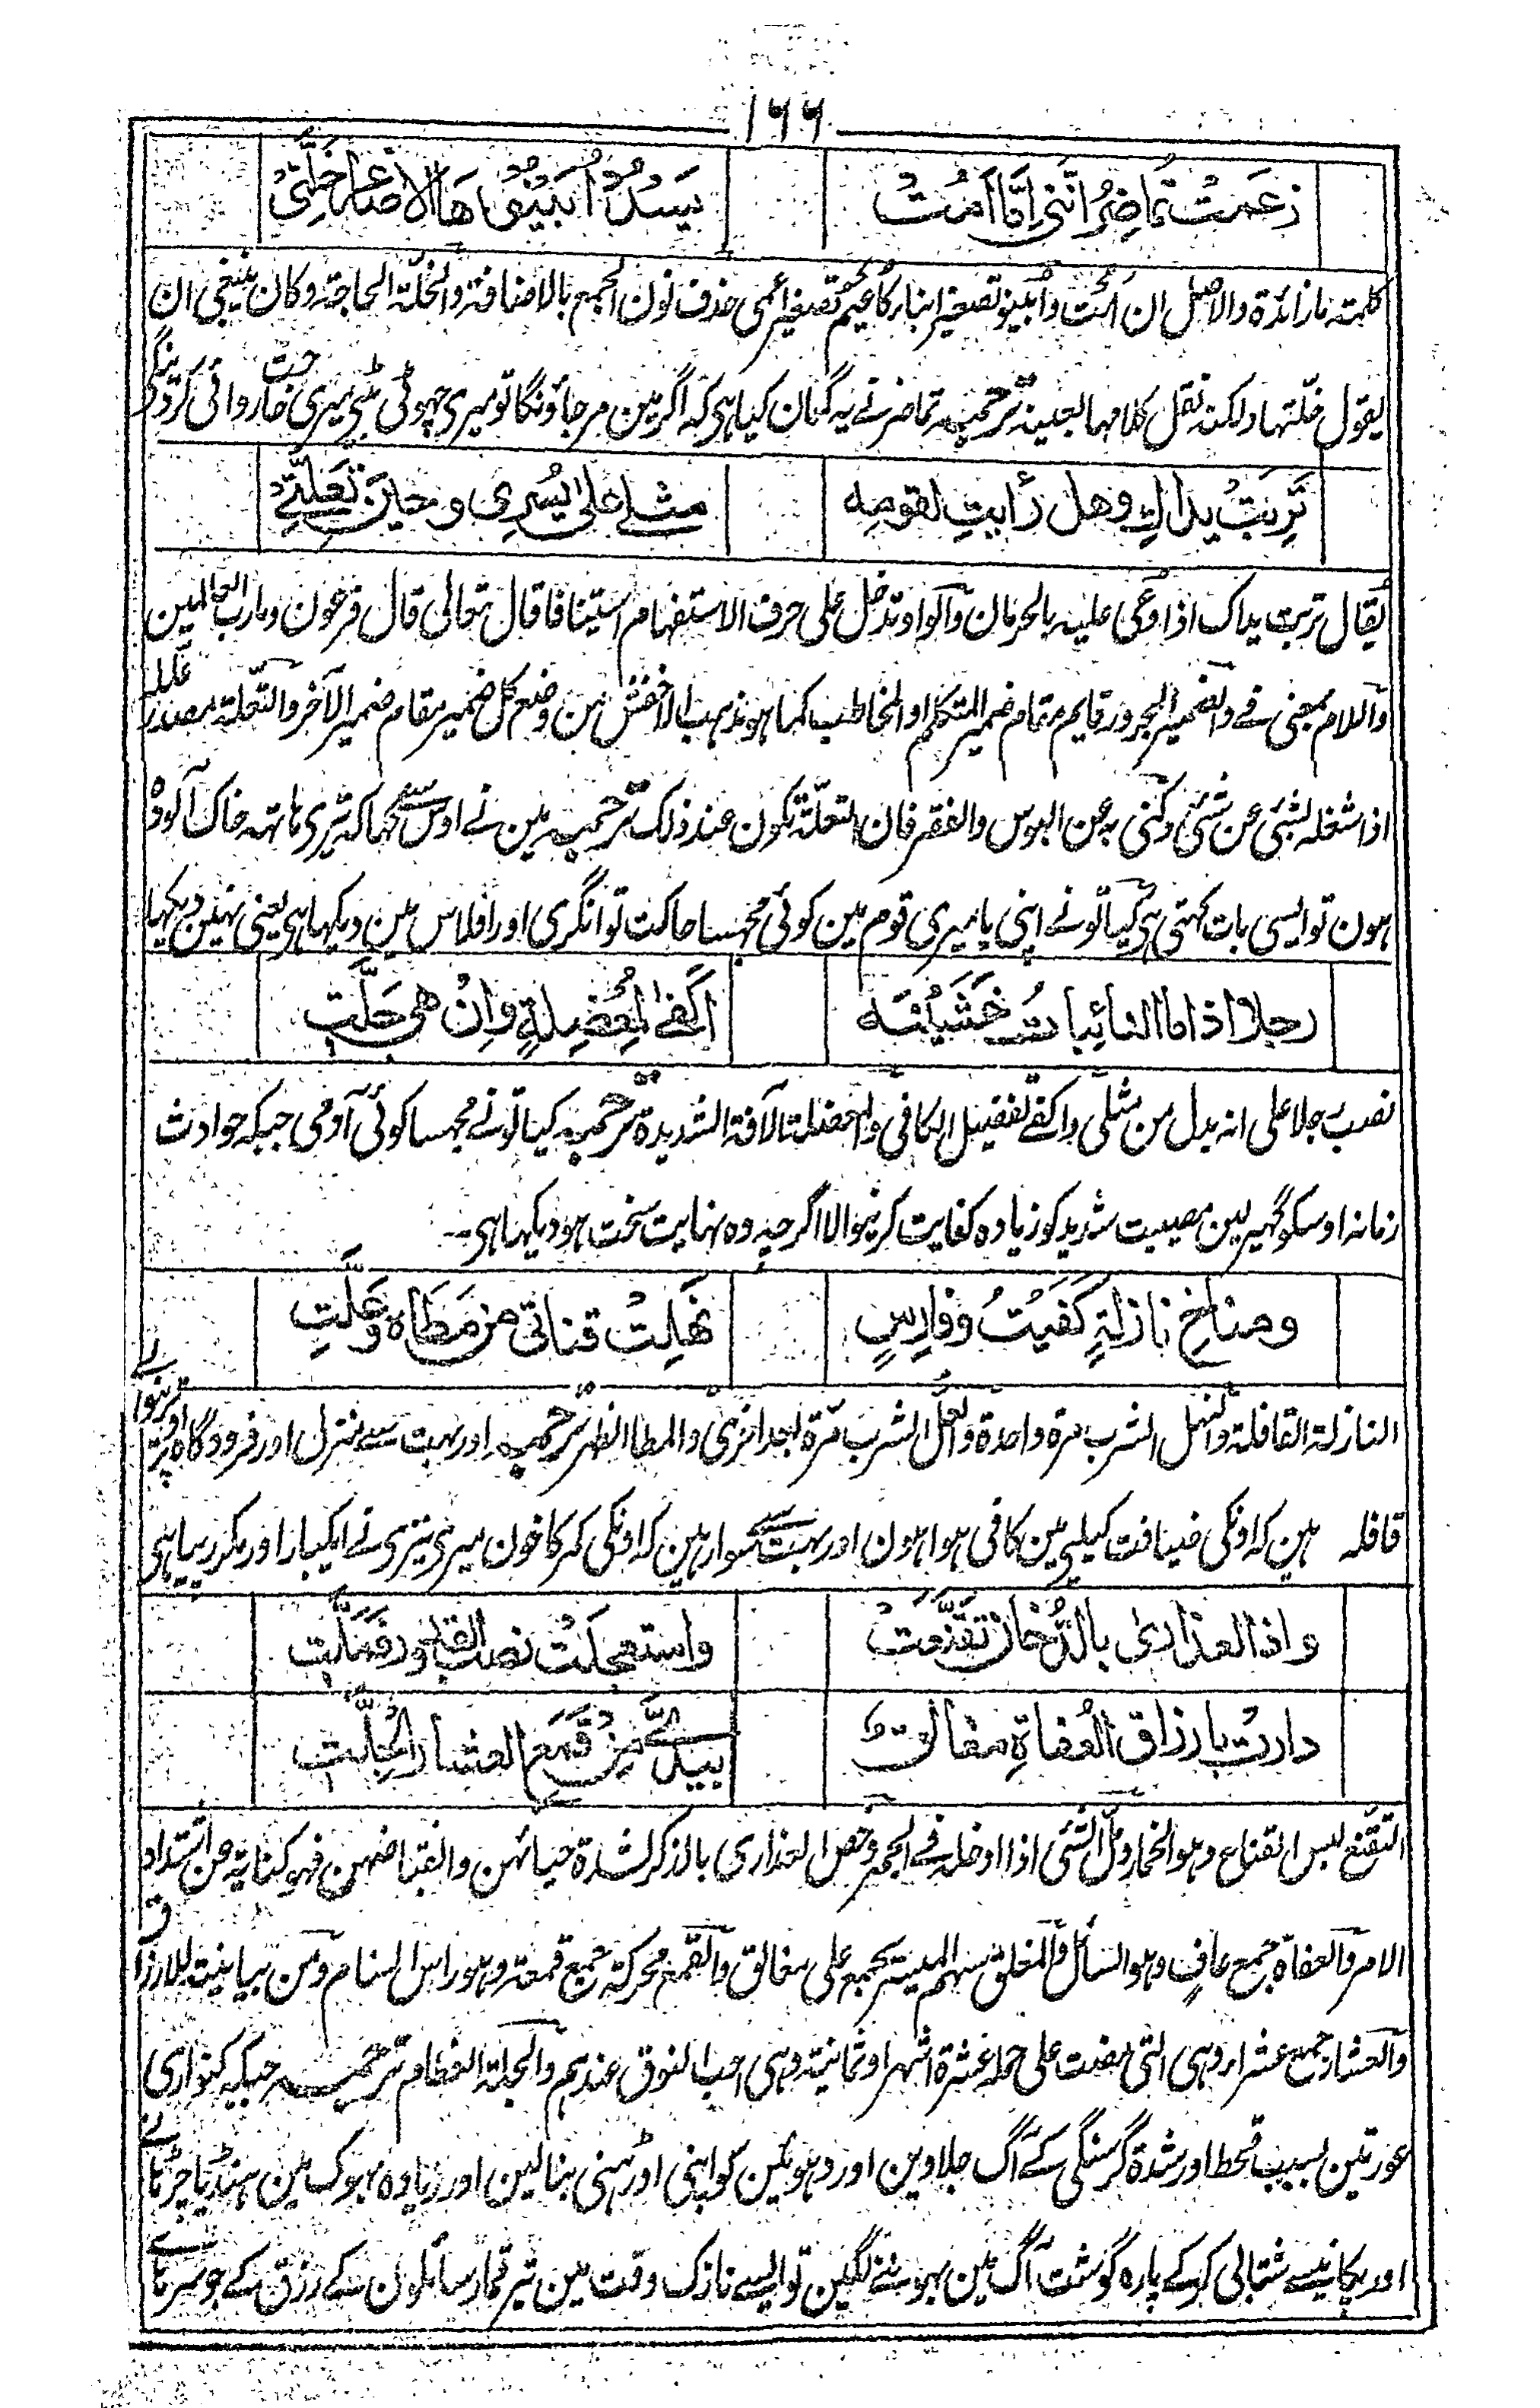 ۱۶۶
زعمت تماضر اننی اما امت یسدد ابینوها الاصاغر خلتی
کلمته ما زائدة والاصل ان امت وابینو تصغیر ابناء کاعیم تصغیر اعمی حذف نون الجمع بالاضافة والخلة الحاجة وکان ینبغی ان
یقول خلتها ولکنه نقل کلامها بعینه ترجمہ تماضر نے یہ گمان کیا ہی کہ اگر مین مر جاؤنگا تو میری چھوٹی بیٹی میری حاجت روائی کردینگی
تربت یداك وهل رأیت لقومه مثلی علی یسری وحین تعلتی
یقال تربت یداک اذا دعی علیه بالحرمان والواو تدخل علی حرف الاستفهام استینافا قال تعالی قال فرعون وما رب العالمین
واللام بمعنی فے والضمیر المجرور قایم مقام ضمیر المتکلم او المخاطب کما هو مذهب الاخفش من وضع کل ضمیر مقام ضمیر الآخر والتعلة مصدر علله
اذا شغله لشئی عن شئی وکنی به عن البوس والفقر فان التعلة تکون عند ذلک ترجمہ مین نے اوس سے کہا کہ تیری ہاتھ خاک آلودہ
ہون تو ایسی بات کہتی ہی کیا تونے اپنی یا میری قوم مین کوئی مجھسا حالت توانگری اور افلاس مین دیکھا ہی یعنی نہین دیکھا
رجلا اذا ما النائبات خشینه اکفی لمعضلة وان هی جلت
نصب رجلا علی انه بدل من مثلی واکفے تفضیل الکافی والمعضلة الآفة الشدیدة ترجمہ کیا تونے مجھسا کوئی آدمی جبکہ حوادث
زمانہ اوسکو گھیر لین مصیبت شدید کو زیادہ کفایت کرنیوالا اگرچہ وہ نہایت سخت ہو دیکھا ہی
ومناخ نازلة کفیت وفارس نهلت قناتی من مطاه وعلت
النازلة القافلة والنهل الشرب مرة واحدة والعل الشرب مرة بعد اخری والمطا الظهر ترجمہ اور بہت سے منزل اور فرودگاہ پر اترنیوالے
قافلہ ہین کہ اونکی ضیافت کیلیے مین کافی ہوا ہون اور بہت سے سوار ہین کہ اونکی کمر کا خون میری نیزی نے ایکبار اور مکرر پیا ہی
واذا العذاری بالدخان تقنعت واستعجلت نصب القدور فملت
دارت بارزاق العفاة مغالق بیدی من قمع العشار الجلت
التقنع لبس القناع وهو الخمار ومل الشئی اذا ادخله فے الجمر وخص العذاری بالذکر لشدة حیائهن وانقباضهن فهو کنایة عن اشتداد
الامر والعفاة جمع عاف وهو السائل والمغلق سهم المیسر یجمع علی مغالق والقمع محرکة جمع قمعة وهو راس السنام ومن بیانیة للارزاق
والعشار جمع عشراء وهی التی مضت علی حملها عشرة اشهر او ثمانیة وهی احب النوق عندهم والجلة العظام ترجمہ جبکہ کنواری
عورتین بسبب قحط اور شدة گرسنگی کے آگ جلاوین اور دہوئین کو اپنی اوڑہنی بنالین اور زیادہ بہوک مین ہنڈیا چڑہانے
اور پکانیسے شتابی کرکے پارہ گوشت آگ مین بہوننے لگین تو ایسے نازک وقت مین تیر قمار سائلون کے رزق کے جو سرہائے